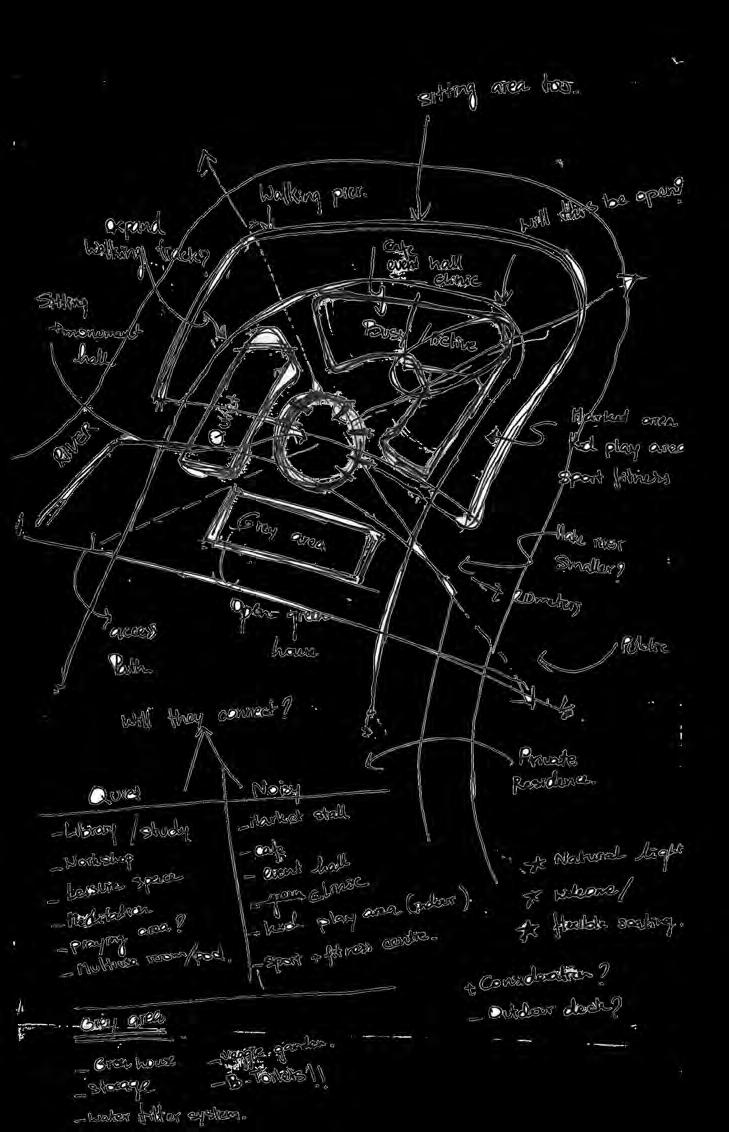 Sitting area
Walking pier.
Will this be open?
expand
walking track?
Cafe
event hall
clinic
Sitting
+monument
hall
Busy / Active
Quiet
RIVER
Market area
Kid play area
sport fitness
Grey area
Make river
smaller?
20 meters
Open-green
house
access
Path.
Public
Will they connect?
Private
Residence.
Quiet
Noisy
- Library / study
- Workshop
- Leisure space
- Meditation
- praying area?
- Multiuse room/pod.
- Market stall
- cafe
- event hall
- clinic
- kid play area (indoor).
- sport + fitness centre.
* Natural light
* welcome /
* flexible seating.
+ Consideration?
- Outdoor deck?
Grey area
- Green house
- storage
- water filter system.
- veggie garden.
- B-Toilets!!